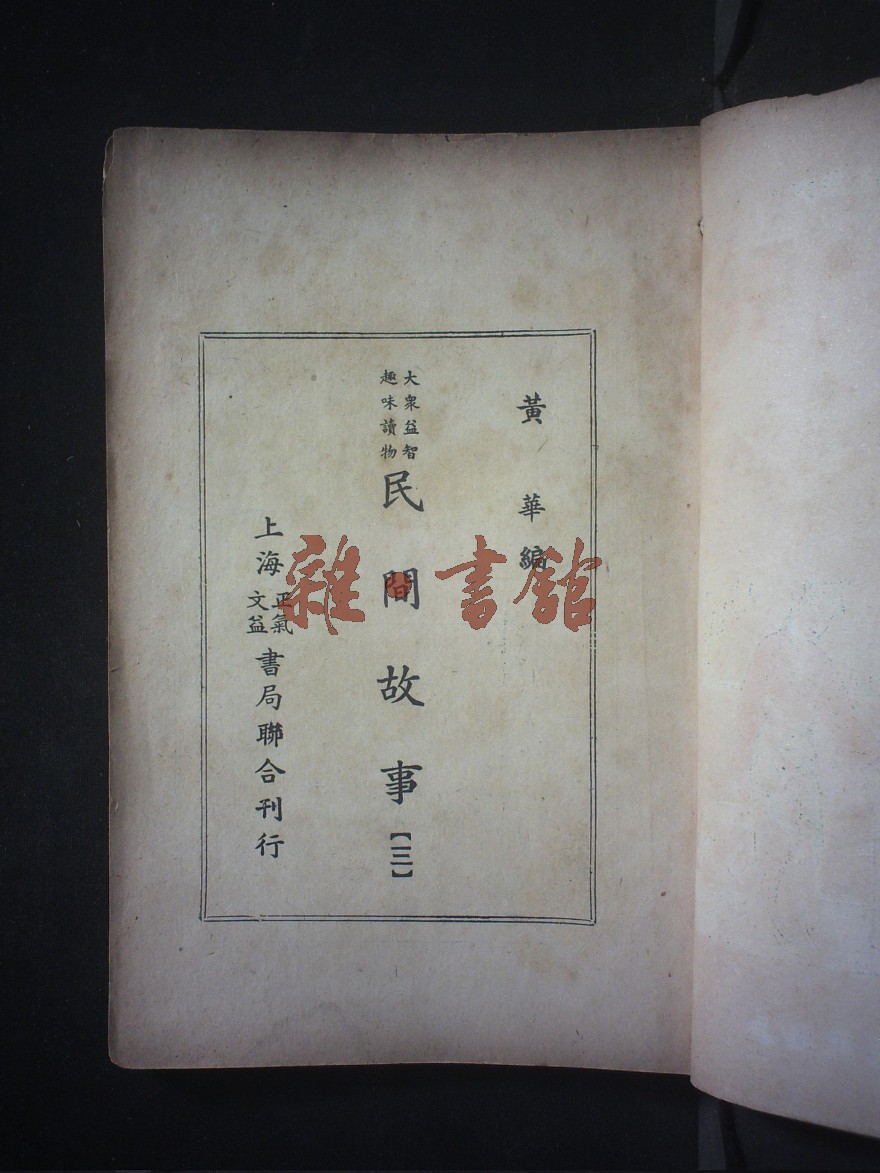 黃華編
大衆益智
趣味讀物
民間故事【三】
上海
正氣
文益
書局聯合刊行
雜書館